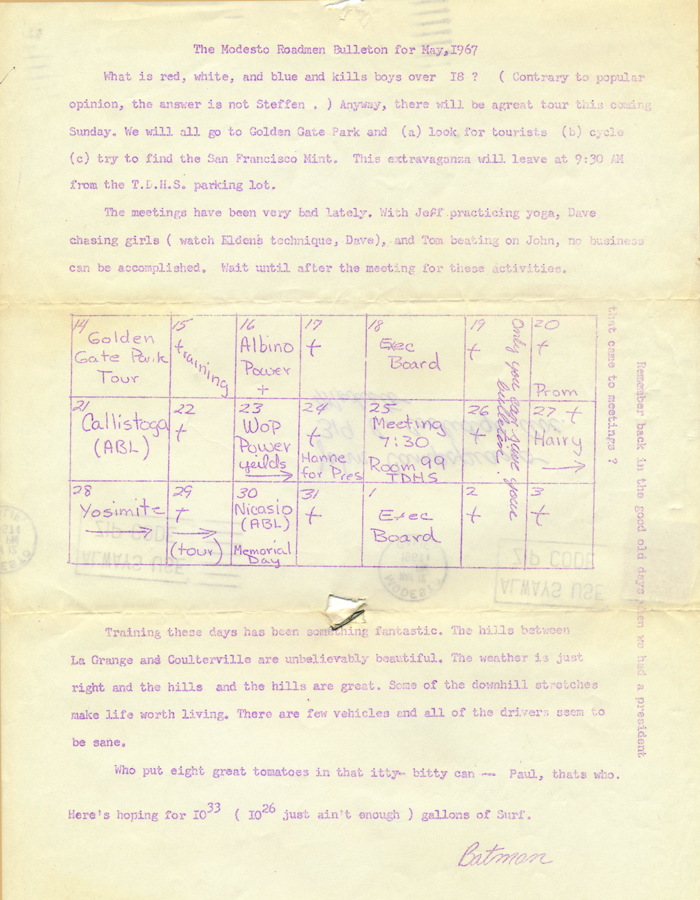 The Modesto Roadmen Bulleton for May,1967
What is red, white, and blue and kills boys over 18 ? ( Contrary to popular
opinion, the answer is not Steffen . ) Anyway, there will be agreat tour this coming
Sunday. We will all go to Golden Gate Park and (a) look for tourists (b) cycle
(c) try to find the San Francisco Mint. This extravaganza will leave at 9:30 AM
from the T.D.H.S. parking lot.
The meetings have been very bad lately. With Jeff practicing yoga, Dave
chasing girls ( watch Eldens technique, Dave), and Tom beating on John, no business
can be accomplished. Wait until after the meeting for these activities.
14
Golden
Gate Park
Tour
15
training
16
Albino
Power
+
17
+
18
Exec
Board
19
+
20
+
Prom
21
Callistoga
(ABL)
22
+
23
WoP
Power
yeilds
24
+
Hanne
for Pres
25
Meeting
7:30
Room 99
TDHS
26
+
27 +
Hairy
28
Yosimite
29
+
(tour)
30
Nicasio
(ABL)
Memorial
Day
31
+
1
Exec
Board
2
+
3
+
Only you can save your
bulleton
Remember back in the good old days when we had a president
that came to meetings ?
ZIP CODE
ALWAYS USE
MODESTO
ZIP CODE
ALWAYS USE
Training these days has been something fantastic. The hills between
La Grange and Coulterville are unbelievably beautiful. The weather is just
right and the hills and the hills are great. Some of the downhill stretches
make life worth living. There are few vehicles and all of the drivers seem to
be sane.
Who put eight great tomatoes in that itty- bitty can -- Paul, thats who.
Here's hoping for 10³³ ( 10²⁶ just ain't enough ) gallons of Surf.
Batman